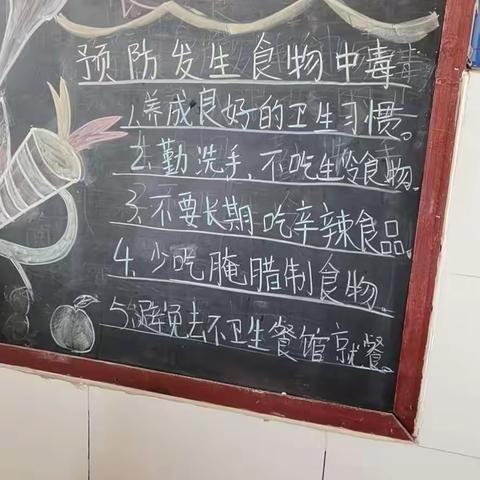 预防发生食物中毒
1.养成良好的卫生习惯。
2.勤洗手、不吃生冷食物.
3.不要长期吃辛辣食品.
4.少吃腌腊制食物.
5.避免去不卫生餐馆就餐。